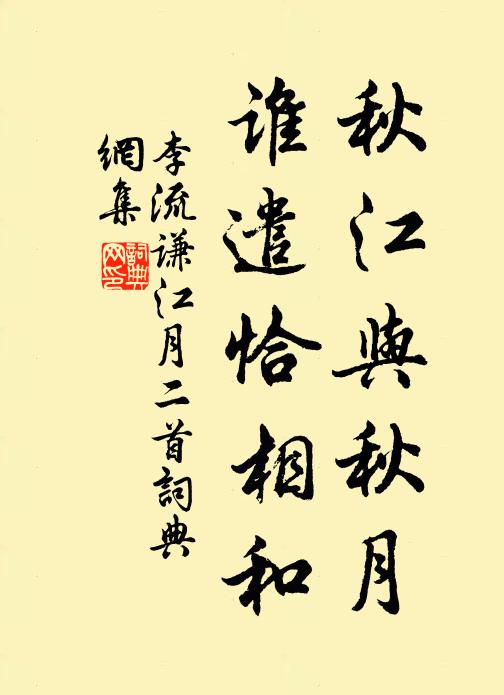 秋江與秋月
誰遣恰相和
李流謙江月二首詞典
網集
詞典
网印